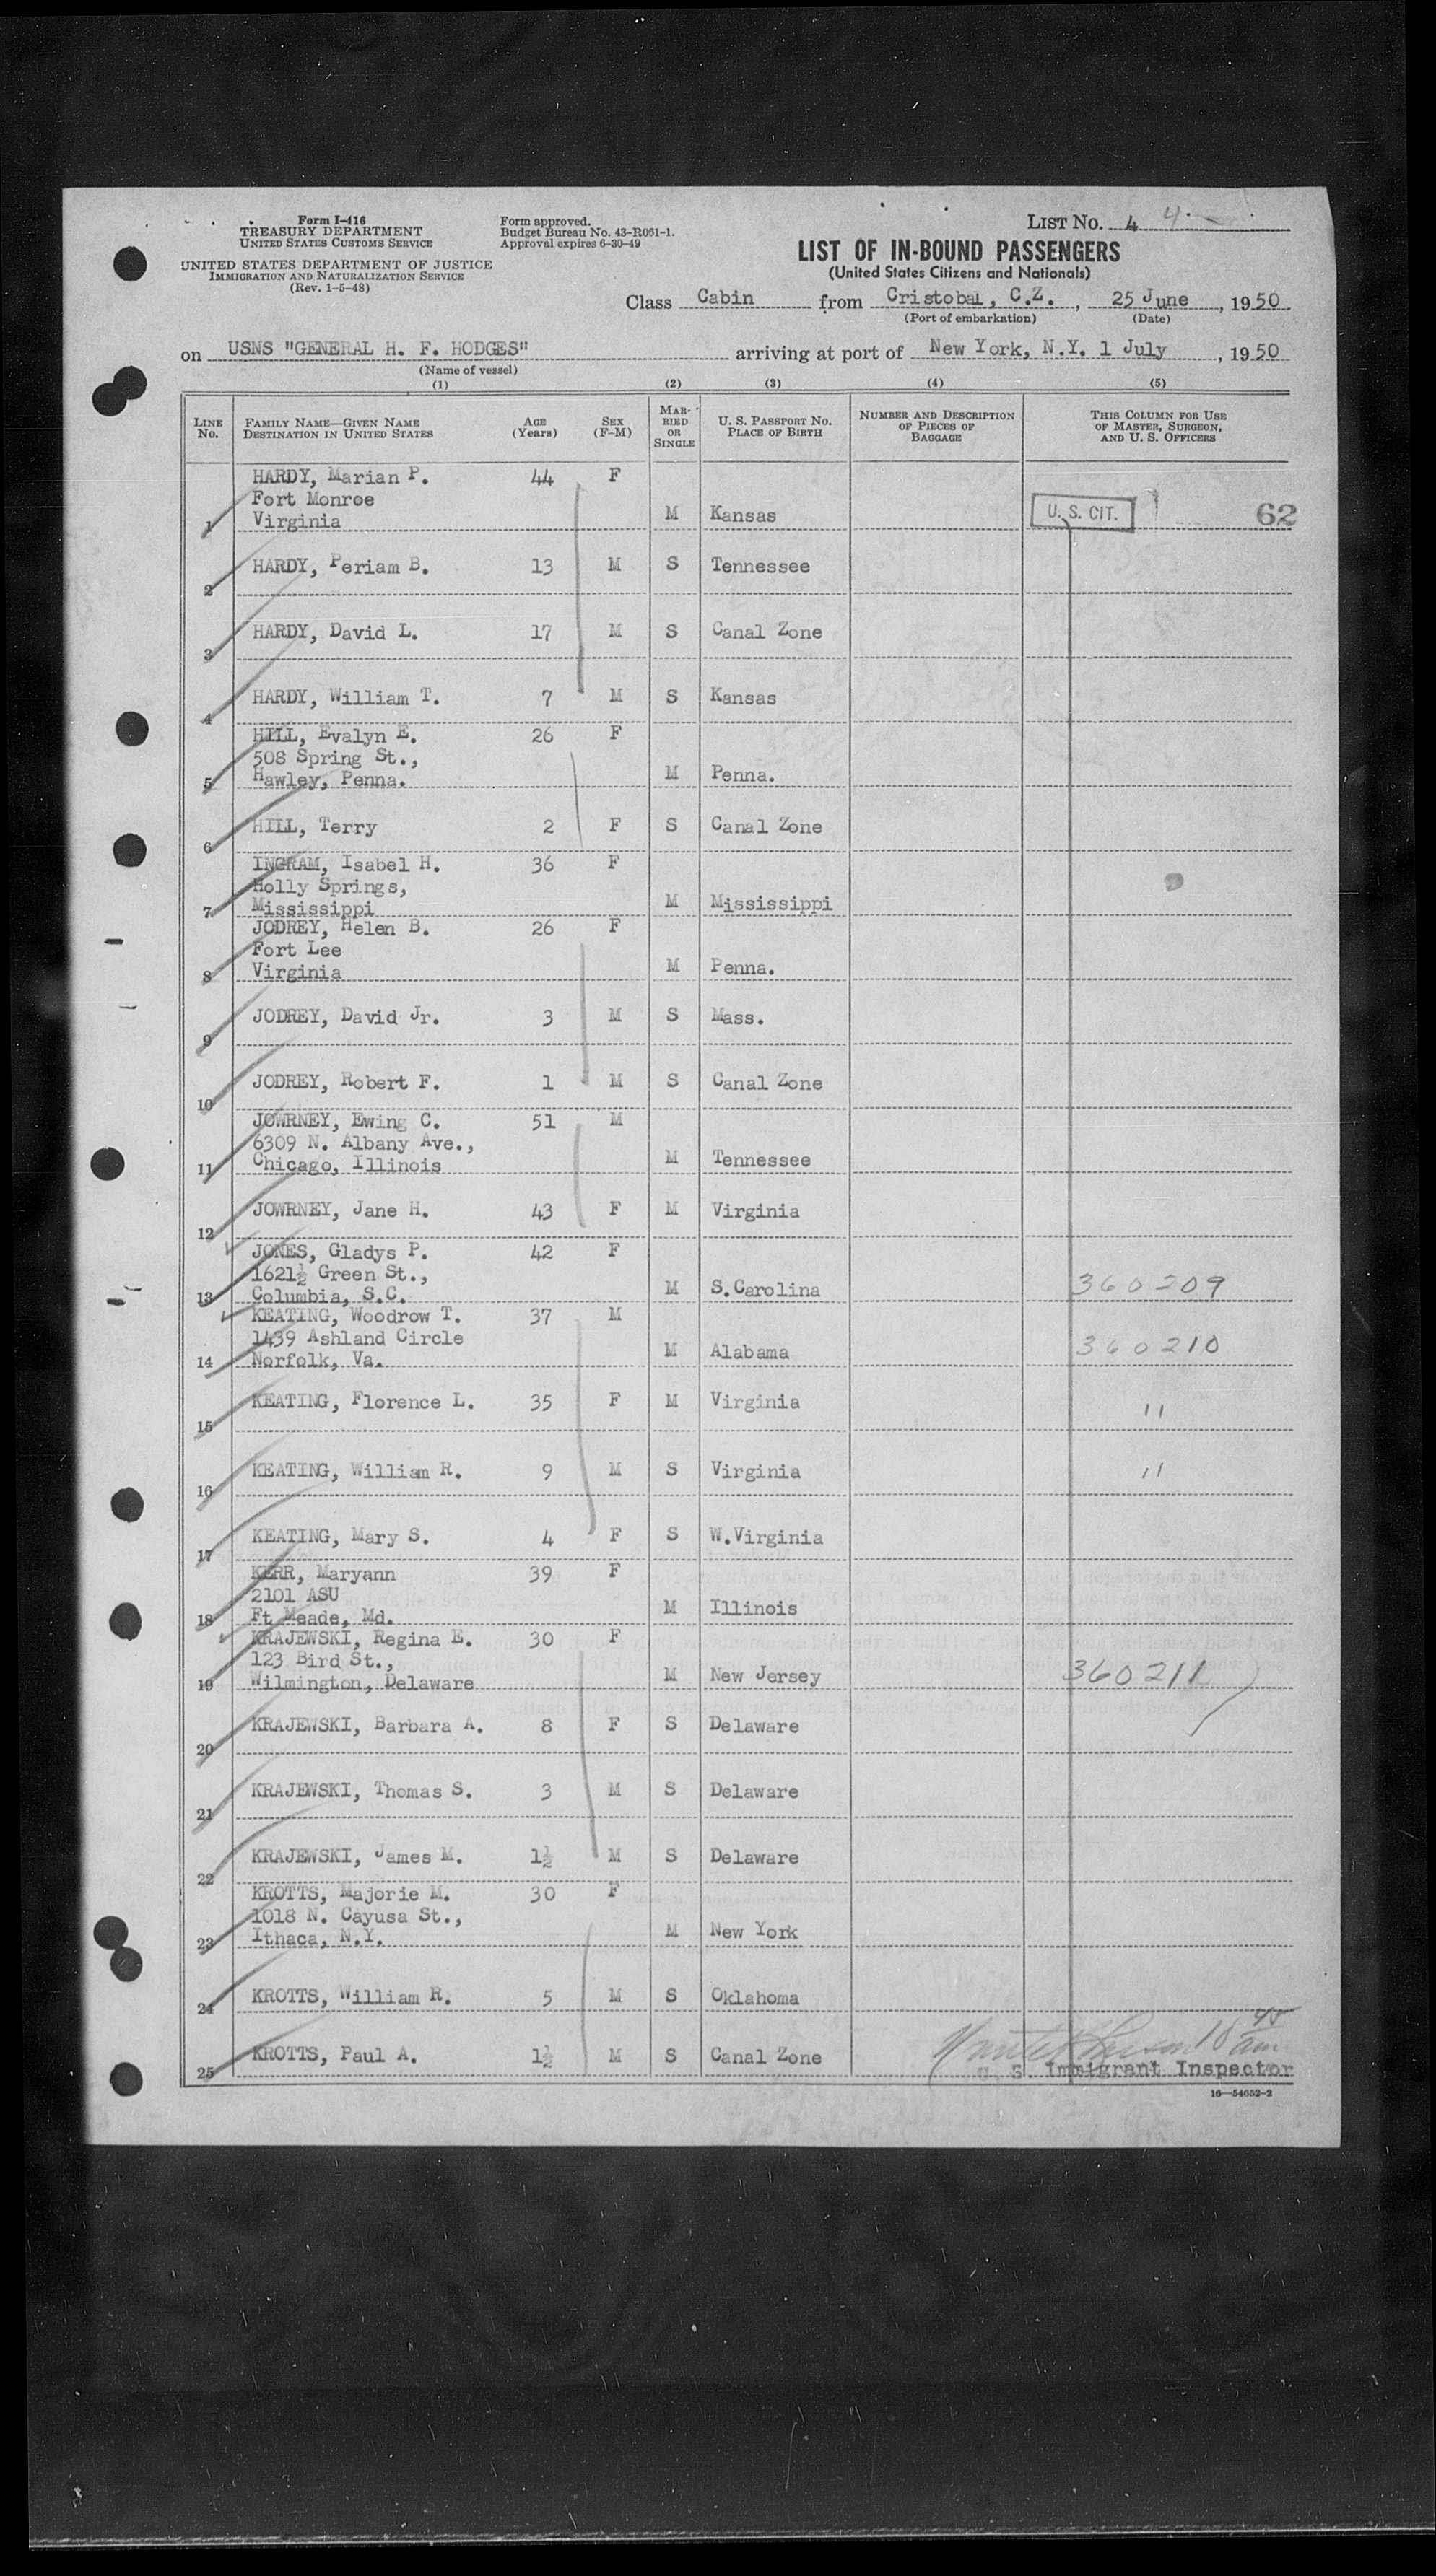 Form I-416
TREASURY DEPARTMENT
UNITED STATES CUSTOMS SERVICE
UNITED STATES DEPARTMENT OF JUSTICE
IMMIGRATION AND NATURALIZATION SERVICE
(Rev. 1-5-48)
Form approved.
Budget Bureau No. 43-R061-1.
Approval expires 6-30-49
LIST NO. 4 4
LIST OF IN-BOUND PASSENGERS
(United States Citizens and Nationals)
Class Cabin from Cristobal, C.Z., 25 June, 1950
(Port of embarkation) (Date)
on USNS "GENERAL H. F. HODGES" arriving at port of New York, N.Y. 1 July, 1950
(Name of vessel)
(1) (2) (3) (4) (5)
LINE No. FAMILY NAME—GIVEN NAME DESTINATION IN UNITED STATES AGE (Years) SEX (F-M) MARRIED OR SINGLE U. S. PASSPORT NO. PLACE OF BIRTH NUMBER AND DESCRIPTION OF PIECES OF BAGGAGE THIS COLUMN FOR USE OF MASTER, SURGEON, AND U. S. OFFICERS
HARDY, Marian P. 44 F
Fort Monroe
1 Virginia M Kansas U. S. CIT. 62
2 HARDY, Periam B. 13 M S Tennessee
3 HARDY, David L. 17 M S Canal Zone
4 HARDY, William T. 7 M S Kansas
HILL, Evalyn E. 26 F
508 Spring St.,
5 Hawley, Penna. M Penna.
6 HILL, Terry 2 F S Canal Zone
INGRAM, Isabel H. 36 F
Holly Springs,
7 Mississippi M Mississippi
JODREY, Helen B. 26 F
Fort Lee
8 Virginia M Penna.
9 JODREY, David Jr. 3 M S Mass.
10 JODREY, Robert F. 1 M S Canal Zone
JOWRNEY, Ewing C. 51 M
6309 N. Albany Ave.,
11 Chicago, Illinois M Tennessee
12 JOWRNEY, Jane H. 43 F M Virginia
JONES, Gladys P. 42 F
1621½ Green St.,
13 Columbia, S.C. M S.Carolina 360209
KEATING, Woodrow T. 37 M
1439 Ashland Circle
14 Norfolk, Va. M Alabama 360210
15 KEATING, Florence L. 35 F M Virginia 11
16 KEATING, William R. 9 M S Virginia 11
17 KEATING, Mary S. 4 F S W.Virginia
KERR, Maryann 39 F
2101 ASU
18 Ft Meade, Md. M Illinois
KRAJEWSKI, Regina E. 30 F
123 Bird St.,
19 Wilmington, Delaware M New Jersey 360211
20 KRAJEWSKI, Barbara A. 8 F S Delaware
21 KRAJEWSKI, Thomas S. 3 M S Delaware
22 KRAJEWSKI, James M. 1½ M S Delaware
KROTTS, Majorie M. 30 F
1018 N. Cayusa St.,
23 Ithaca, N.Y. M New York
24 KROTTS, William R. 5 M S Oklahoma
10 45 am
25 KROTTS, Paul A. 1½ M S Canal Zone
U. S. Immigrant Inspector
16—54652-2